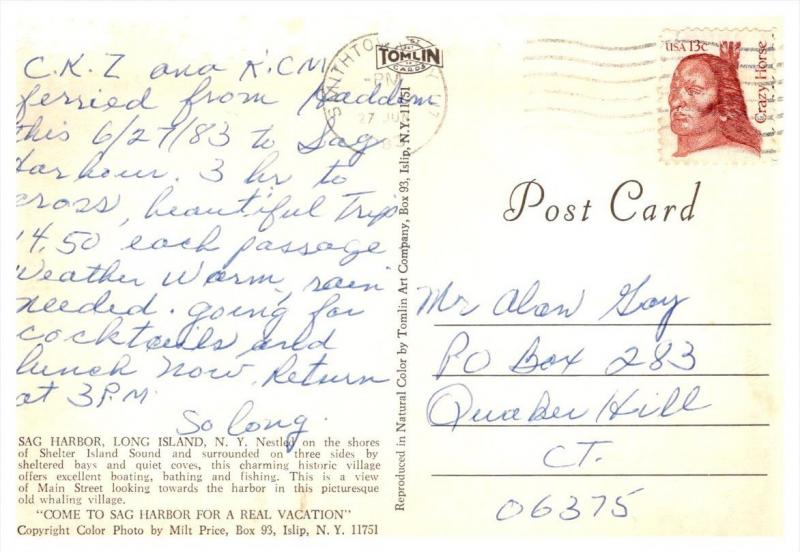 C.K.Z and K.C.M
ferried from Haddam
this 6/27/83 to Sag
Harbour. 3 hr to
cross, beautiful Trip
14.50 each passage
Weather Warm, rain
needed. going for
cocktails and
lunch now. Return
at 3 P.M.
So long.
SAG HARBOR, LONG ISLAND, N. Y. Nestled on the shores
of Shelter Island Sound and surrounded on three sides by
sheltered bays and quiet coves, this charming historic village
offers excellent boating, bathing and fishing. This is a view
of Main Street looking towards the harbor in this picturesque
old whaling village.
"COME TO SAG HARBOR FOR A REAL VACATION"
Copyright Color Photo by Milt Price, Box 93, Islip, N. Y. 11751
TOMLIN
CARDS
PM
27 JUN
Reproduced in Natural Color by Tomlin Art Company, Box 93, Islip, N.Y. 11751
USA 13c
Crazy Horse
Post Card
Mr Alan Goy
PO Box 283
Quaker Hill
CT.
06375